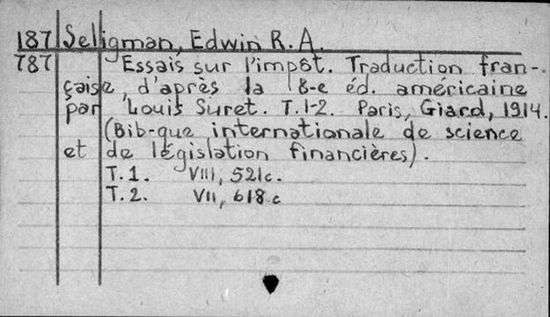 187 Seligman, Edwin R. A.
787 Essais sur l'impôt. Traduction fran-
çaise, d'après la 8-e éd. américaine
par Louis Suret. T. 1-2. Paris, Giard, 1914.
(Bib-que internationale de science
et de législation financières).
T. 1. VIII, 521 c.
T. 2. VII, 618 c